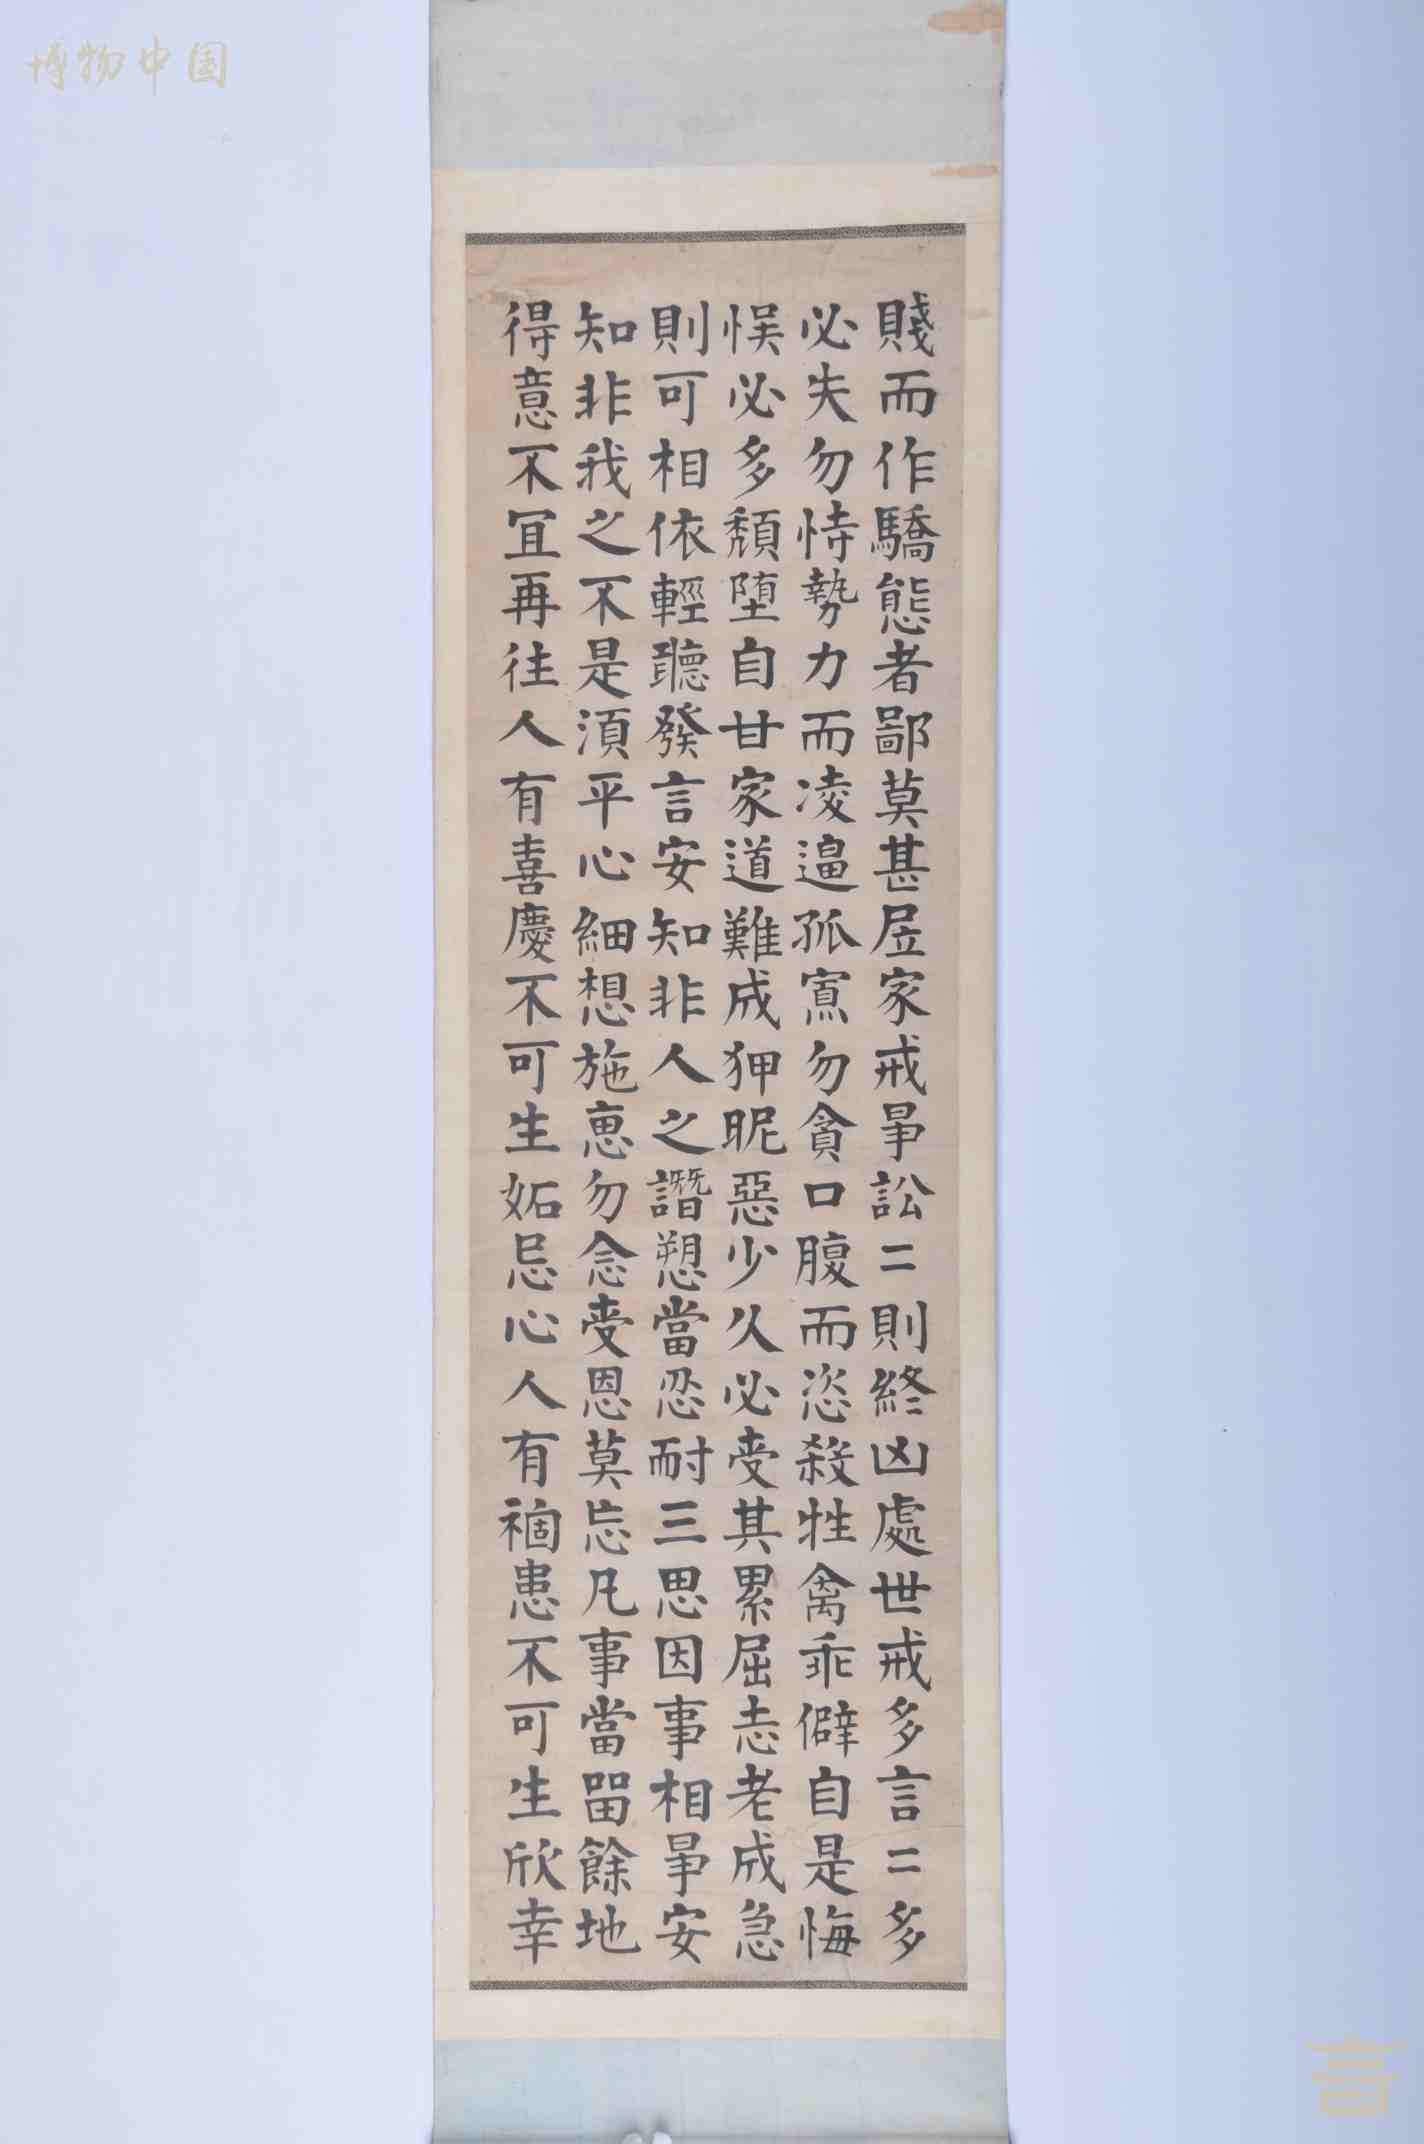 博物中国
賤而作驕態者鄙莫甚居家戒爭訟二則終凶處世戒多言二多
必失勿恃勢力而凌逼孤寡勿貪口腹而恣殺牲禽乖僻自是悔
悮必多頹堕自甘家道難成狎昵惡少久必受其累屈志老成急
則可相依輕聽發言安知非人之譖愬當忍耐三思因事相爭安
知非我之不是須平心細想施恵勿念受恩莫忘凡事當畱餘地
得意不冝再往人有喜慶不可生妬忌心人有禍患不可生欣幸